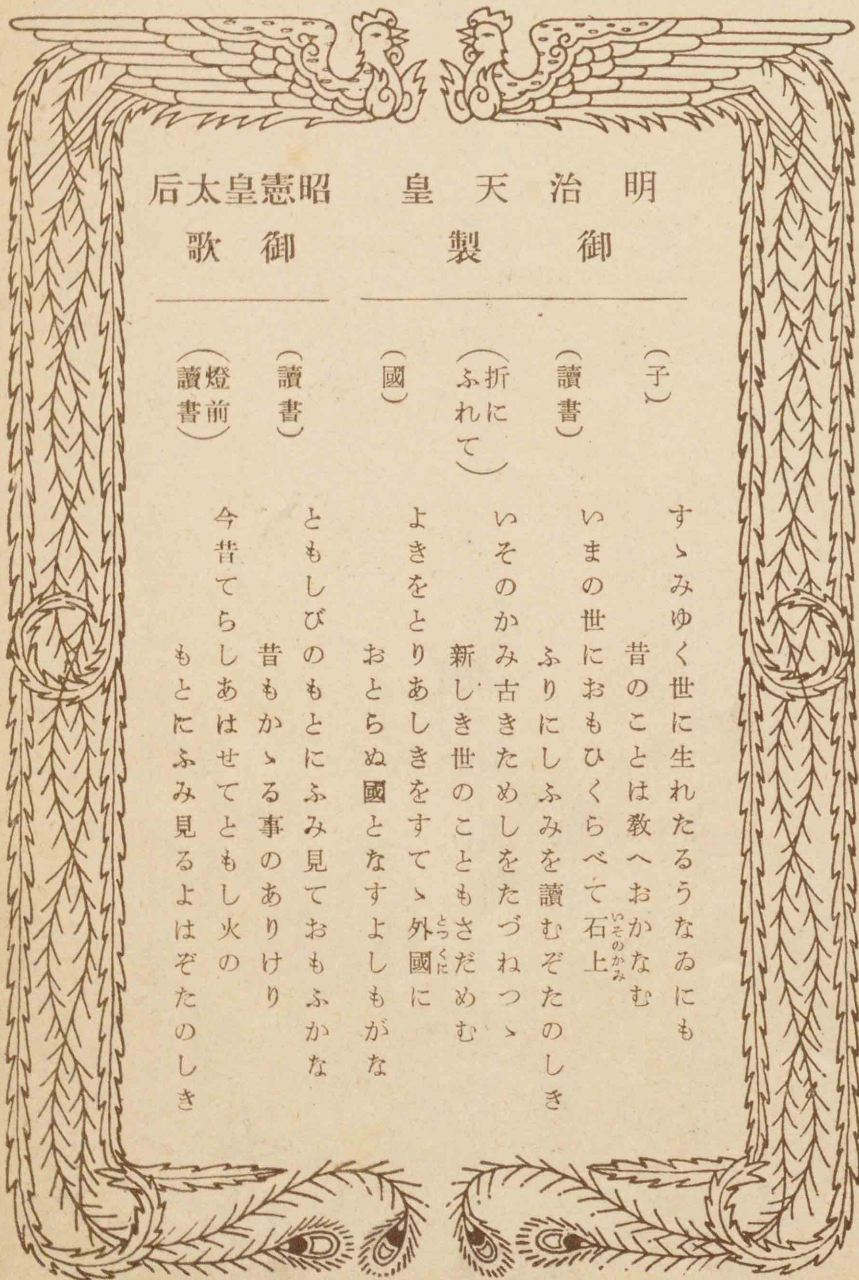 明治天皇
御製
(子)
すゝみゆく世に生れたるうなゐにも
昔のことは教へおかなむ
(讀書)
いまの世におもひくらべて石上
いそのかみ
ふりにしふみを讀むぞたのしき
(折に
ふれて)
いそのかみ古きためしをたづねつゝ
新しき世のこともさだめむ
(國)
よきをとりあしきをすてゝ外國に
とつくに
おとらぬ國となすよしもがな
昭憲皇太后
御歌
(讀書)
ともしびのもとにふみ見ておもふかな
昔もかゝる事のありけり
(燈前
讀書)
今昔てらしあはせてともし火の
もとにふみ見るよはぞたのしき